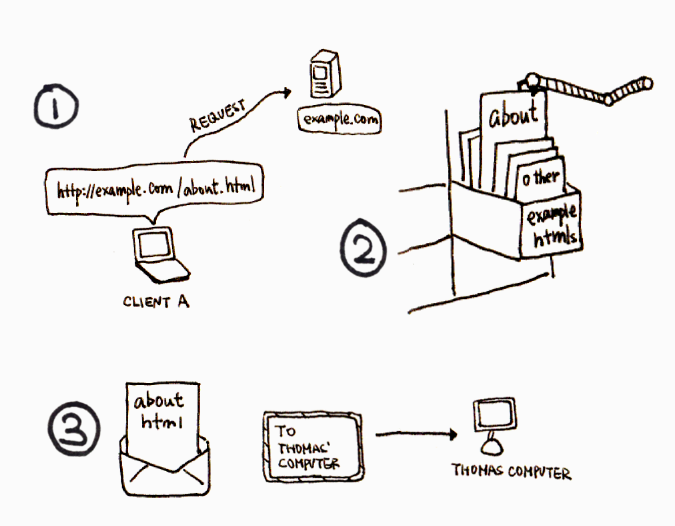 1
REQUEST
example.com
http://example.com/about.html
CLIENT A
2
about
other
example
htmls
3
about
html
TO
THOMAS'
COMPUTER
THOMAS COMPUTER